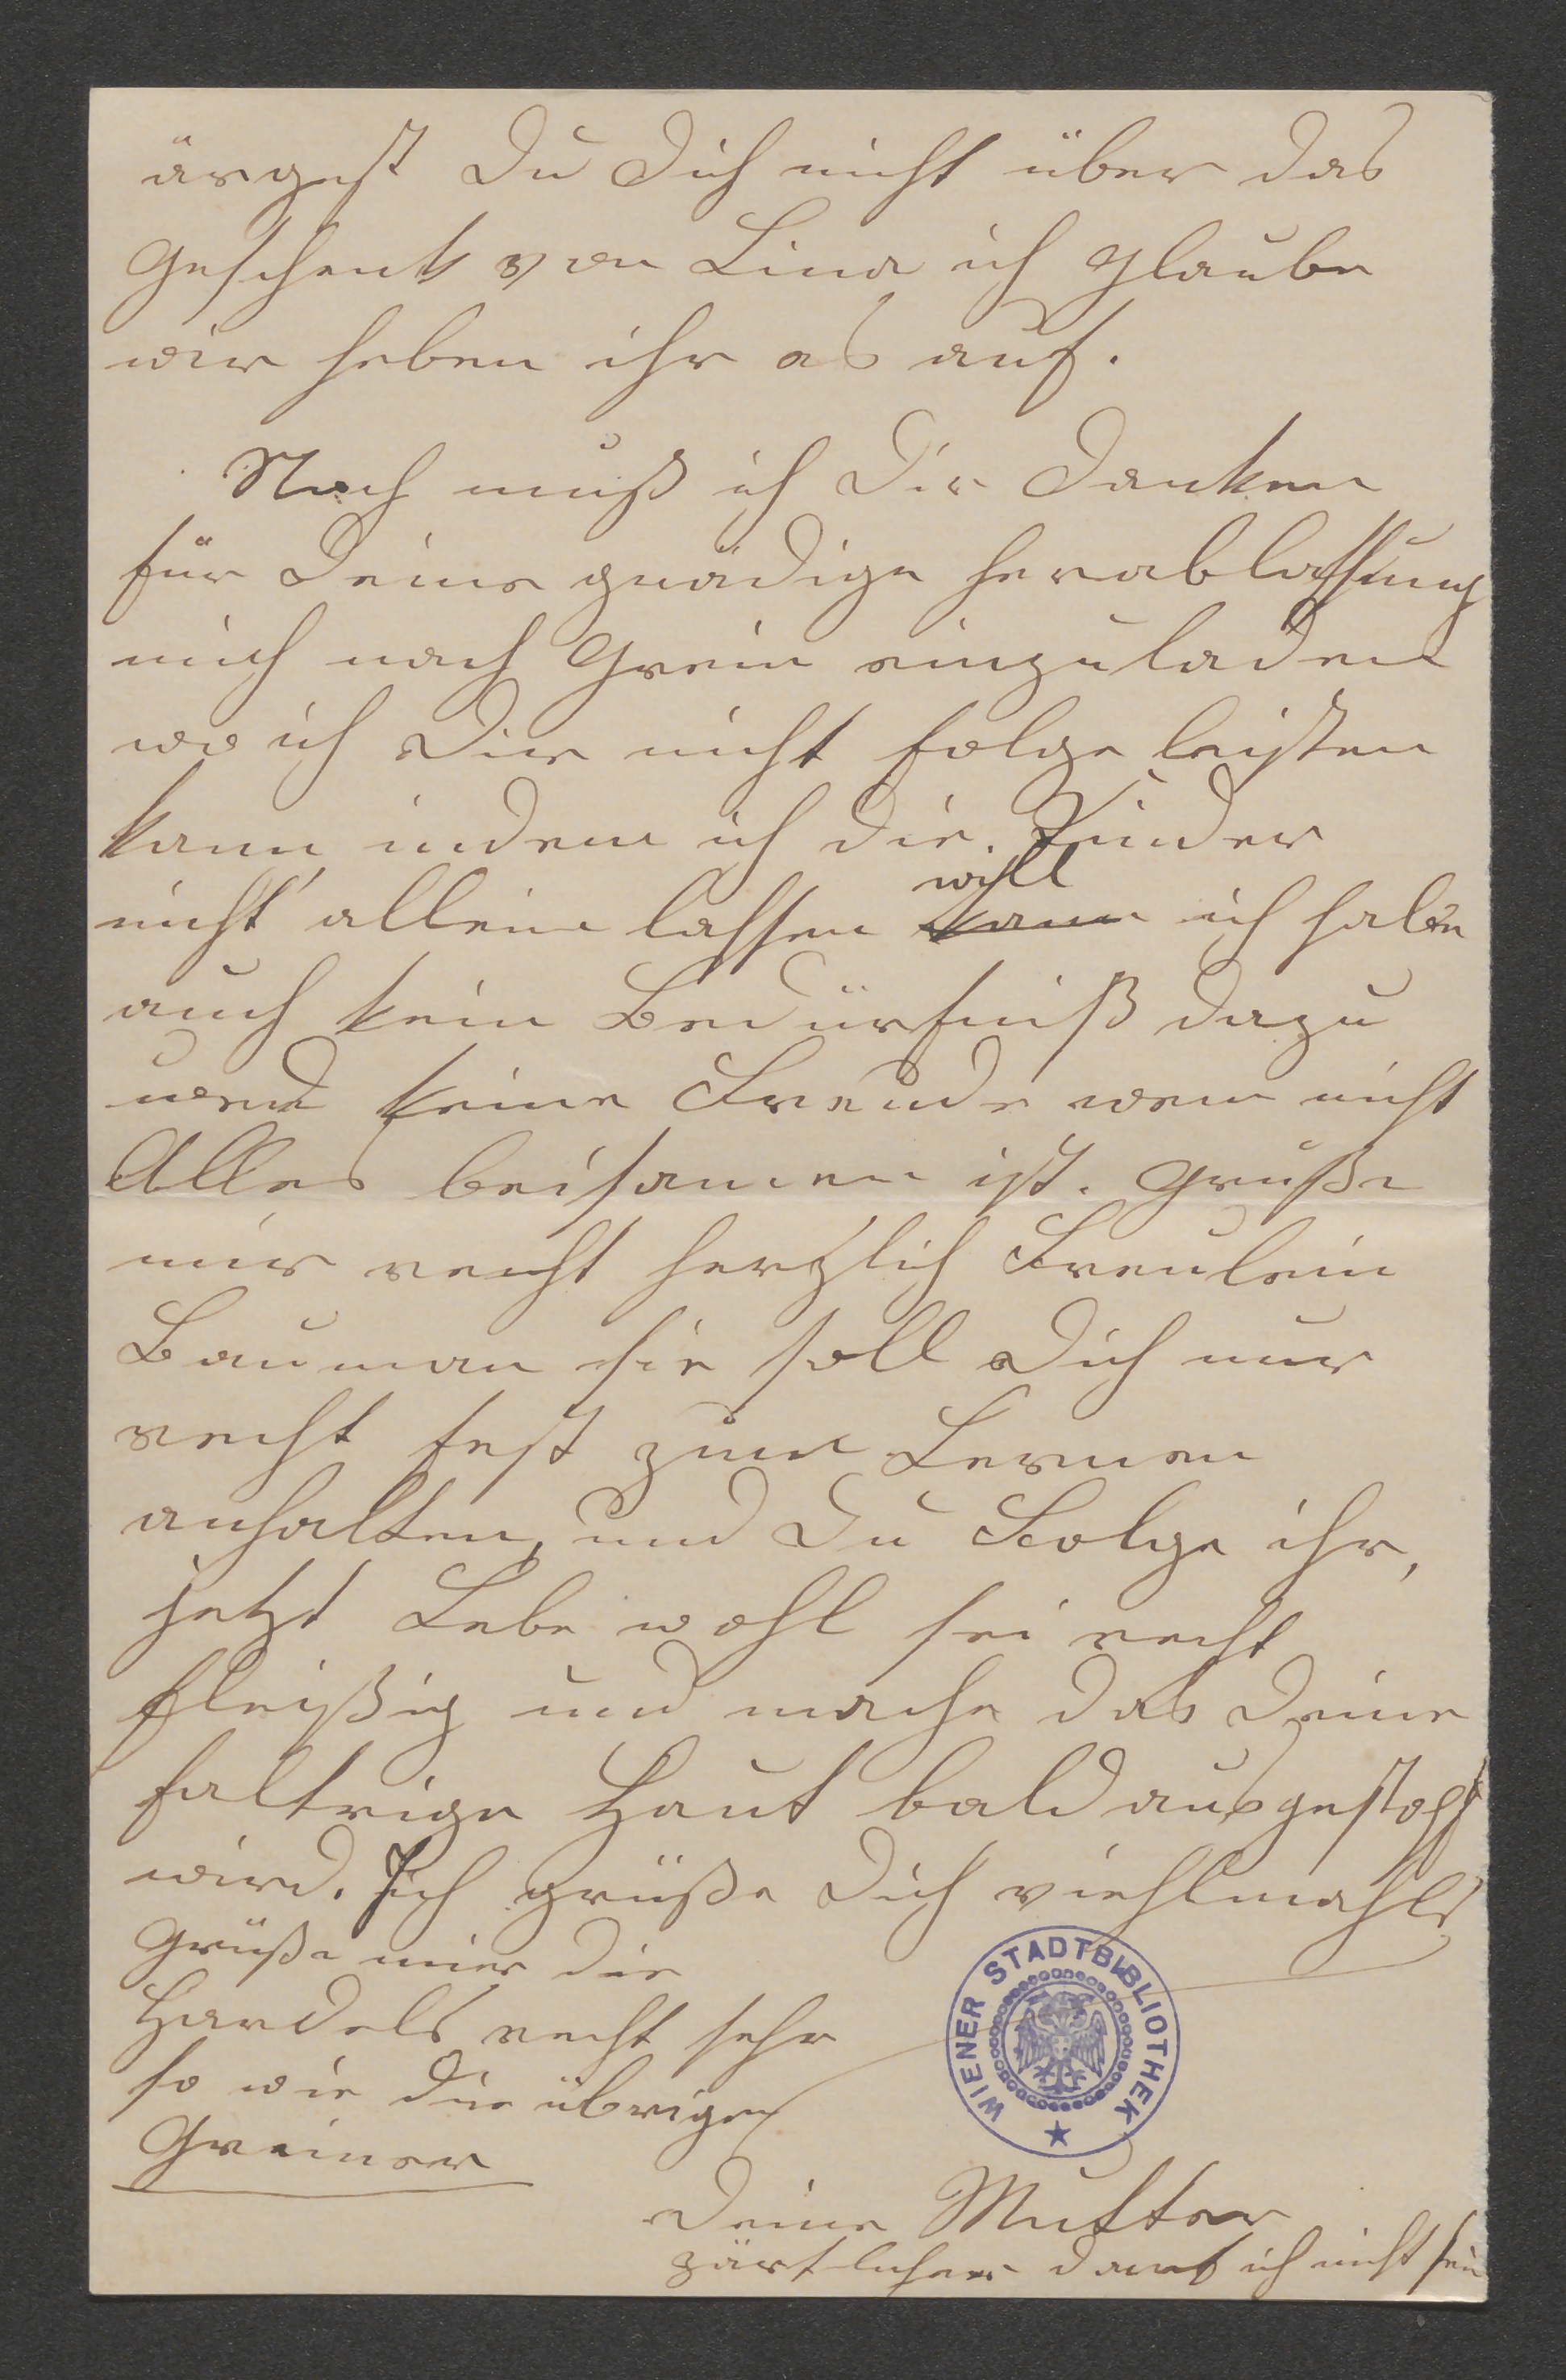 ärgest Du Dich nicht über das
Geschenk von Lina ich glaube
wir heben ihr es auf.
Noch muß ich Dir Danken
für Deine gnädige herablassung
mich nach Grein einzuladen
wo ich Dir nicht folge leisten
kann, indem ich die Kinder
will
nicht allein lassen kann ich habe
auch kein Bedürfniß dazu
und keine Freude wen nicht
Alles beisamen ist. Grüße
mir recht herzlich Freulein
Bauman sie soll Dich nur
recht fest zum Lernen
anhalten, und Du Folge ihr,
jetzt Lebe wohl sei recht
fleißig und mache das Deine
faltrige Haut bald ausgestopft
wird. Ich grüße Dich viehlmahls
Grüße mir die
Handels recht sehr
so wie die übrigen
Greiner
WIENER STADTBIBLIOTHEK
Deine Mutter
zärtlicher darf ich nicht sein